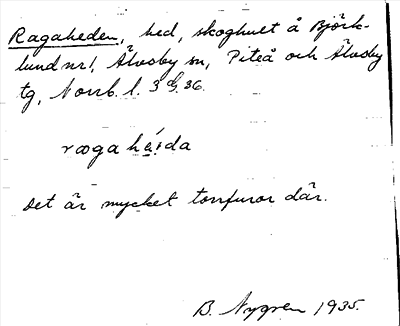 Ragaheden, hed, skoghuet å Björk-
lund nr 1, Älvsby sn, Piteå och Älvsby
tg, Norrb. l. 3 36.
raga
Det är mycket torrfuror där.
B. Nygren 1935.